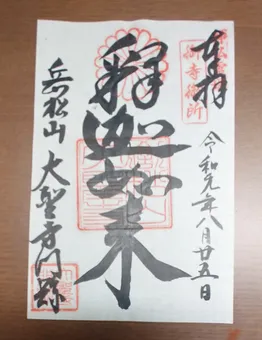 奉拝
御寺御所
令和元年八月廿五日
釋迦如来
岳松山 大聖寺門跡